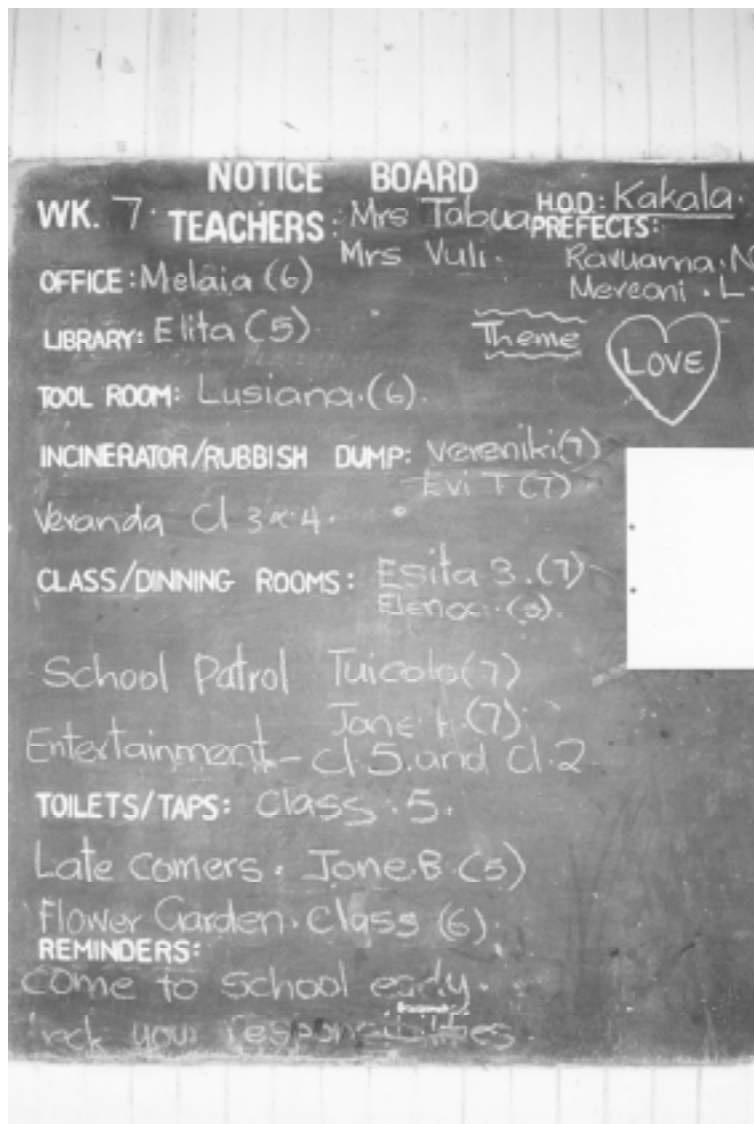 NOTICE BOARD
WK. 7. TEACHERS: Mrs Tabua
H.O.D: Kakala.
PREFECTS:
Mrs Vuli.
Ravuama. N
Mereani. L
OFFICE: Melaia (6)
LIBRARY: Elita (5)
Theme
LOVE
TOOL ROOM: Lusiana. (6).
INCINERATOR/RUBBISH DUMP: Vereniki (7)
Evi T (7)
Veranda Cl 3 & 4.
CLASS/DINNING ROOMS: Esita (7)
Elena. (3).
School Patrol Tuicolo (7)
(7)
Entertainment - Cl 5. and Cl. 2
TOILETS/TAPS: Class. 5.
Late Comers. Jone. B. (5)
Flower Garden. Class (6).
REMINDERS:
Come to School early.
your responsibilities.